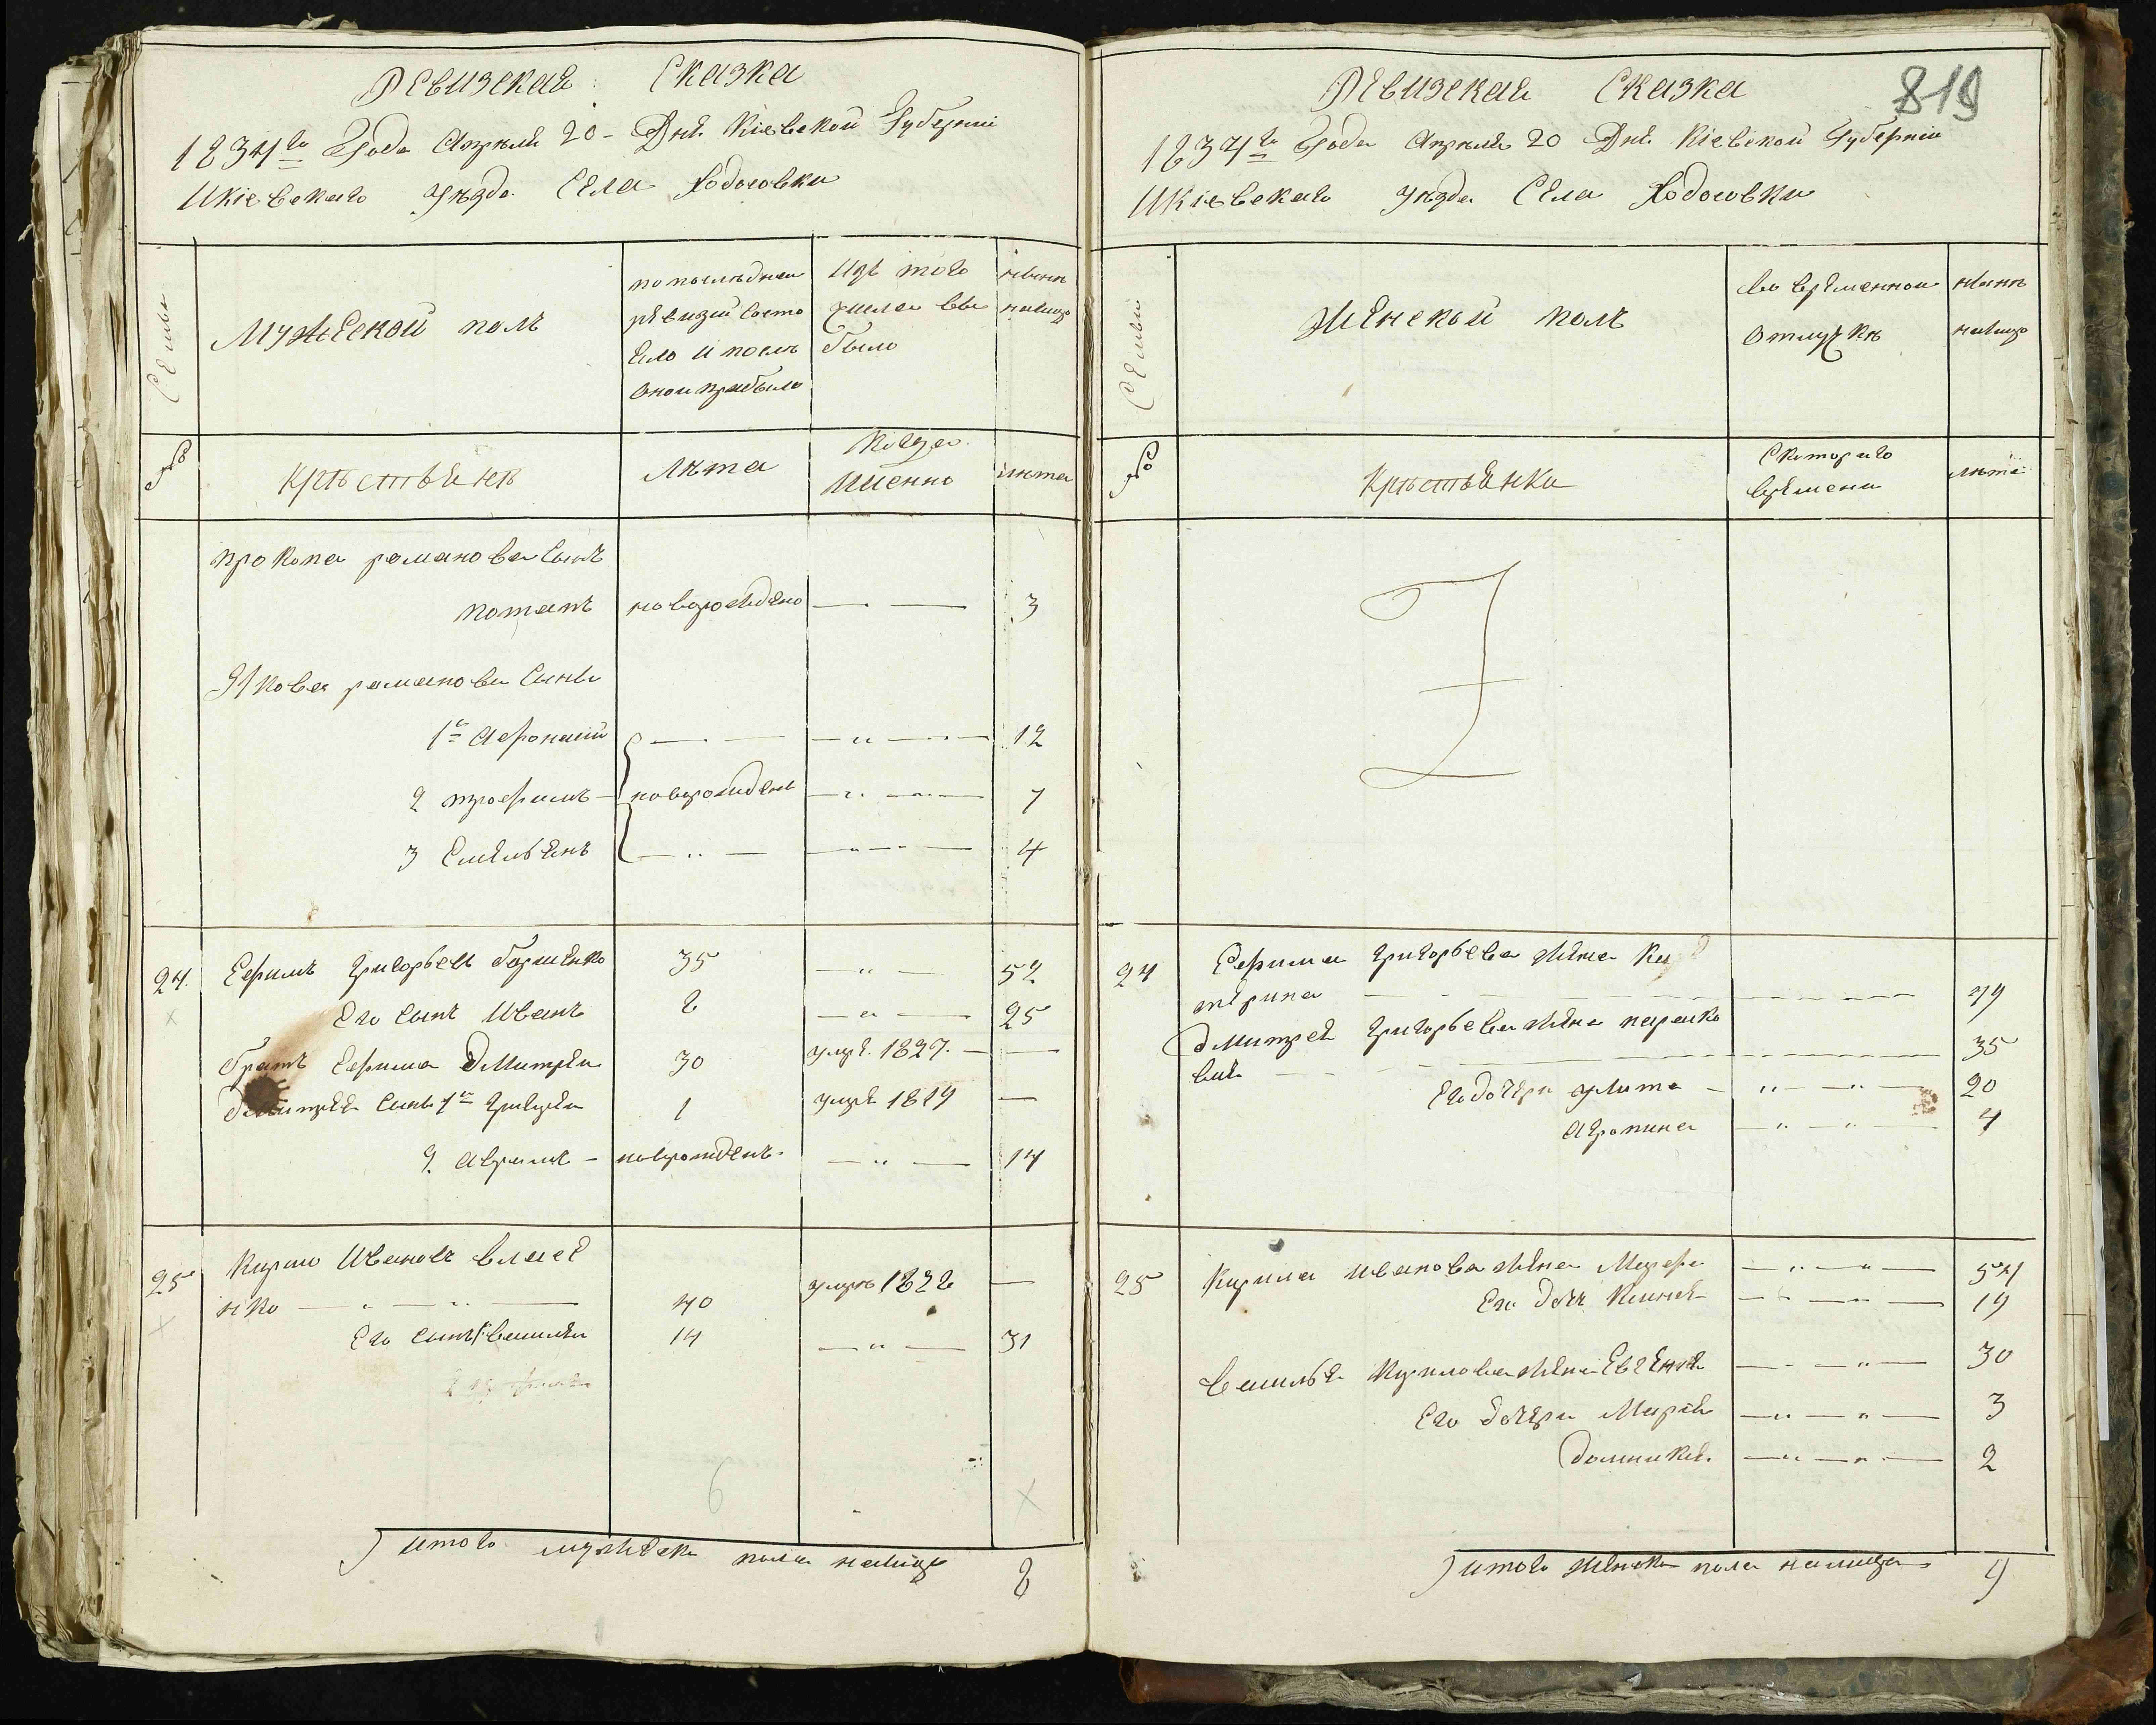 Ревизская Сказка
1834го Года Апреля 20 Дня Кіевской Губерніи
И Кіевскаго Уезда Села Ходосовки
Семьи
Мужеской полъ
по последней
ревизіи состо
яло и после
оной прибыло
Изъ того
числа вы
было
ныне
налицо
№
Крестьяне
Лета
Когда
именно
лета
Прокопа романова сынъ
Потапъ новорожденъ — — 3
Якова романова сыны
1й Афонасій — — „ — 12
2 трофимъ новорождены — „ — 7
3 Емельянъ — „ — — „ — 4
24. Ефимъ Григорьевъ 35 — „ — 52
Его сынъ Иванъ 8 — „ — 25
братъ Ефима Дмитрей 30 умре 1827. —
Дмитрея сынъ 1й Григорей 1 умре 1819 —
2. Аврамъ — новорожденъ — „ — 14
25 Кирило Ивановъ Власе
нко — „ — „ — 40 умре 1828 —
Его сынъ 1й василей 14 — „ — 31
6
Итого мужеска пола налицо 8
819
Ревизская Сказка
1834го Года Апреля 20 Дня Кіевской Губерніи
И Кіевскаго Уезда Села Ходосовки
Семьи
Женской полъ
во временной
отлучке
ныне
налицо
№
Крестьянки
С котораго
времени
лета
24 Ефима Григорьева жена Ка
терина 49
Дмитрея Григорьева жена параско
вия 35
Его дочери улита — „ — „ — 20
Агропина — „ — „ — 4
25 Кирила иванова жена Марфа — „ — „ — 54
Его дочь — „ — „ — 19
василья Кирилова жена Евгения — „ — „ — 30
Его дочери Марія — „ — „ — 3
Домникия — „ — „ — 2
Итого женска пола налицо 9